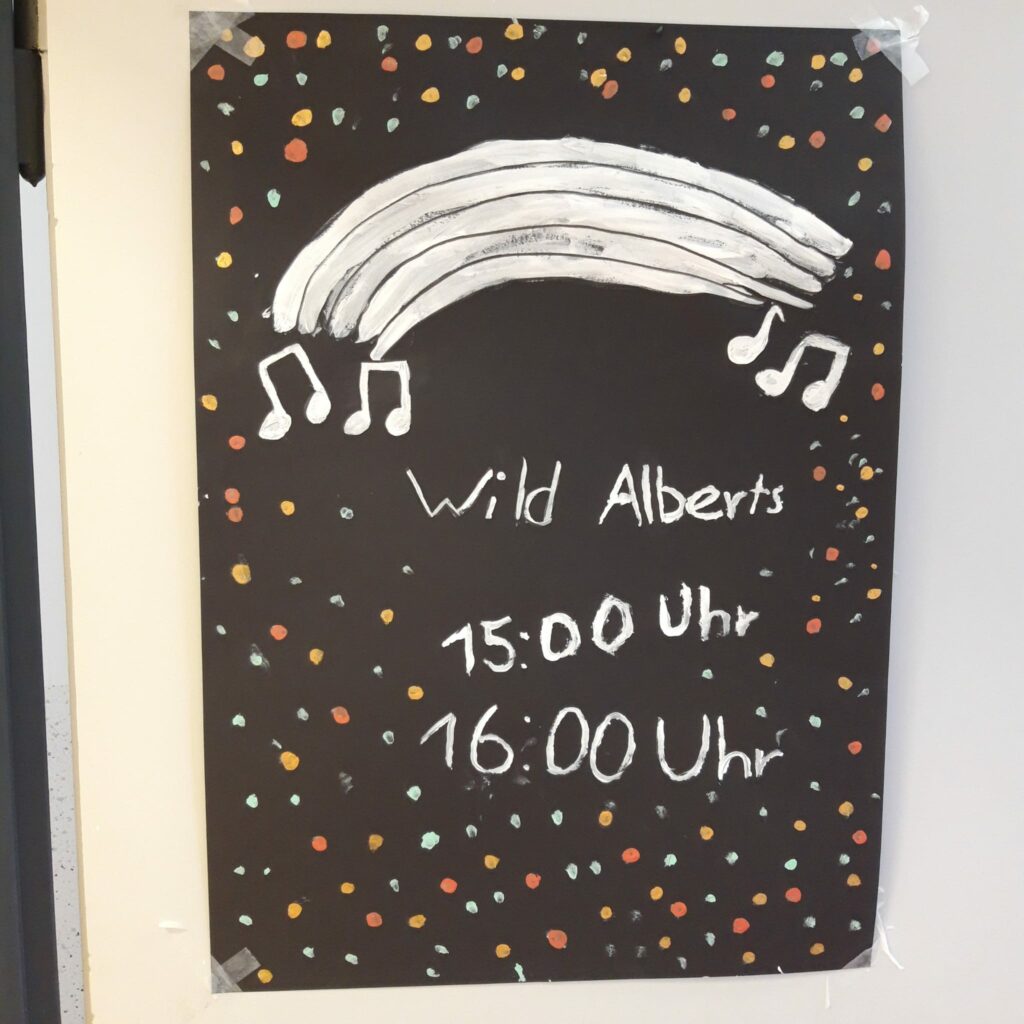 Wild Alberts
15:00 Uhr
16:00 Uhr